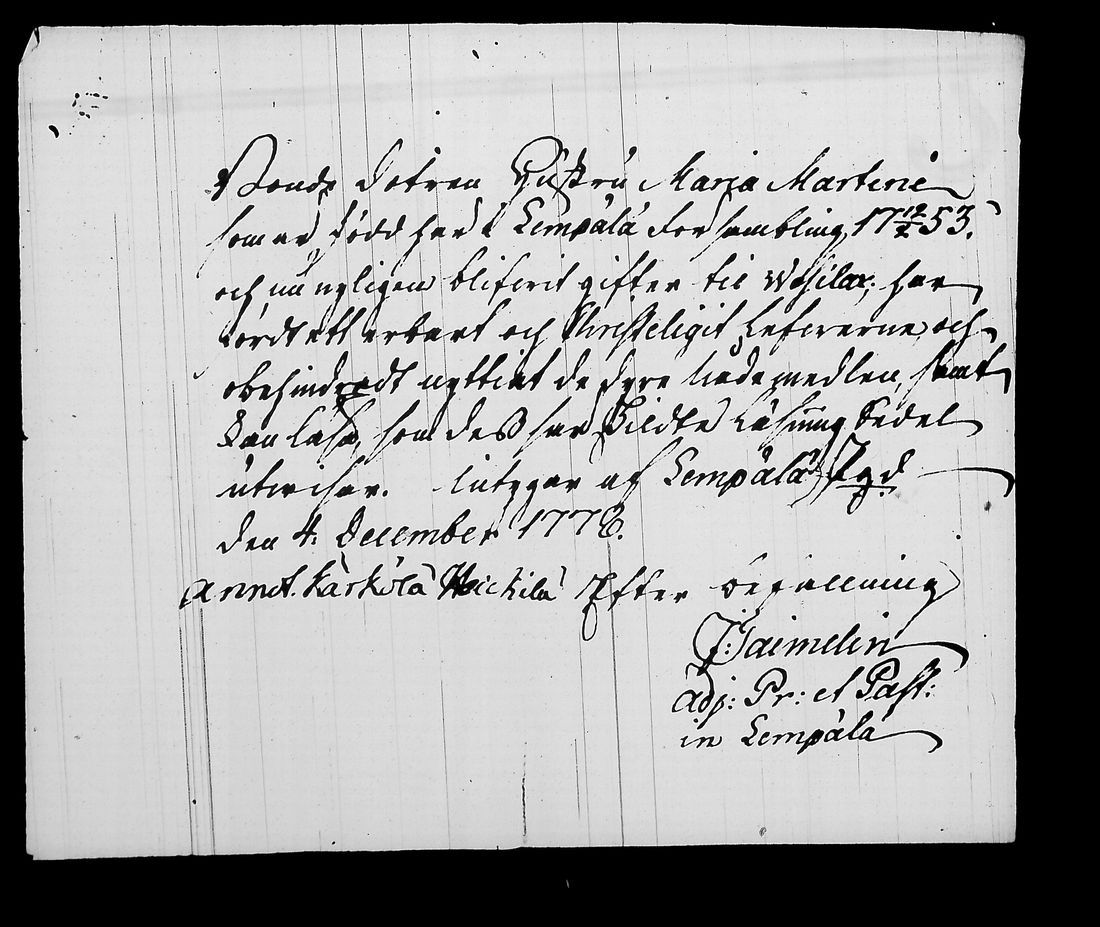 Bonde dotren Hustru Maria Martene
som er född her i Lempälä Forsambling, 17 12/2 53.
och nu nyligen blifvit gifter til Wesilax, har
fördt ett erbart och Christeligit Lefverne, och
obehindradt nyttiat de dyre Nådemedlen, samt
kan läsa, som dess har bildte Läsning Sedel
utvisar. Intygar af Lempälä Pgd
den 4. December 1778.
Annot. Kärkölä Heickilä Efter befallning
J: Haimelin
adj: Pr: et Past:
in Lempälä